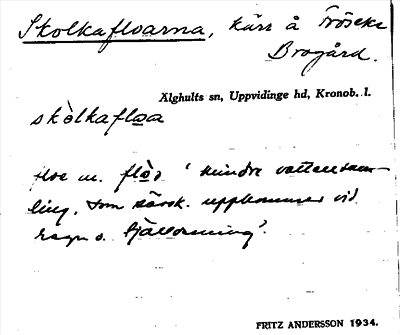 Skolkafloarna, kärr å Fröseke
Brogård.
Älghults sn, Uppvidinge hd, Kronob. l.
skòlkafloa
floe m. flòə ' mindre vattensam-
ling, som särsk. uppkommer vid
regn o. tjällossning'.
FRITZ ANDERSSON 1934.